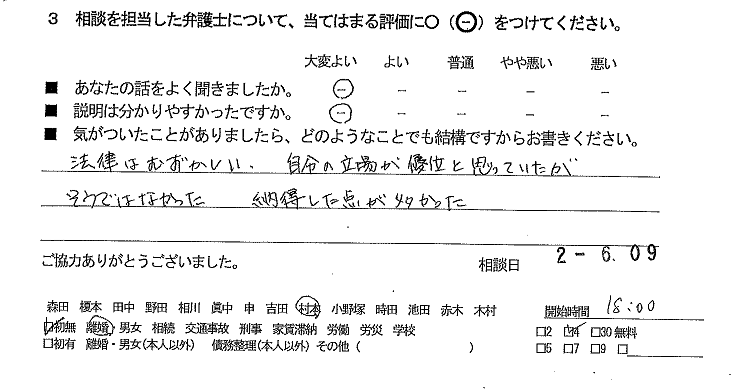 3 相談を担当した弁護士について、当てはまる評価に○（㊀）をつけてください。
大変よい よい 普通 やや悪い 悪い
■ あなたの話をよく聞きましたか。 － － － － －
■ 説明は分かりやすかったですか。 － － － － －
■ 気がついたことがありましたら、どのようなことでも結構ですからお書きください。
法律はむずかしい、 自分の立場が優位と思っていたが
そうではなかった 納得した点が多かった
ご協力ありがとうございました。
相談日 2-6.09
森田 榎本 田中 野田 相川 眞中 申 吉田 村本 小野塚 時田 池田 赤木 木村 開始時間 18:00
□初無 離婚・男女 相続 交通事故 刑事 家賃滞納 労働 労災 学校 □2 □4 □30無料
□初有 離婚・男女(本人以外) 債務整理(本人以外) その他 ( ) □5 □7 □9 □